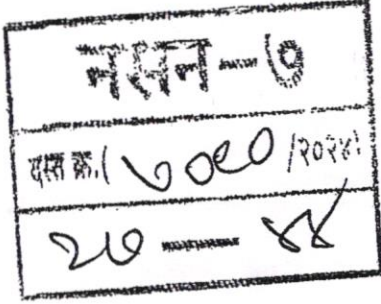 नसन-७
दस्त क्र.( ७०९० /२०२४)
२७ — ४४